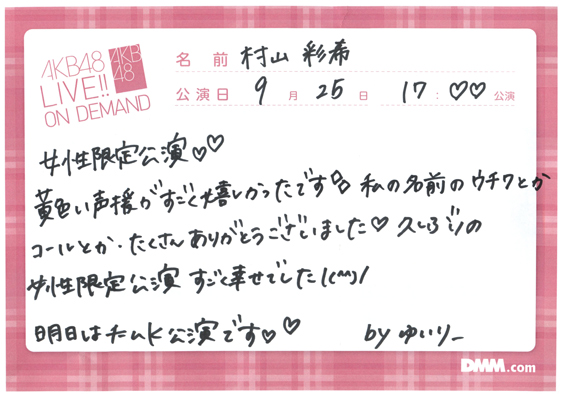 AKB48
LIVE!!
ON DEMAND
AKB
48
名 前 村山 彩希
公演日 9 月 25 日 17:♡♡ 公演
女性限定公演♡♡
黄色い声援がすごく嬉しかったです 私の名前のウチワとか
コールとか・たくさんありがとうございました♡ 久しぶりの
女性限定公演 すごく幸せでした!(^^)!
明日はチームK公演です♡♡ by ゆいりー
DMM.com